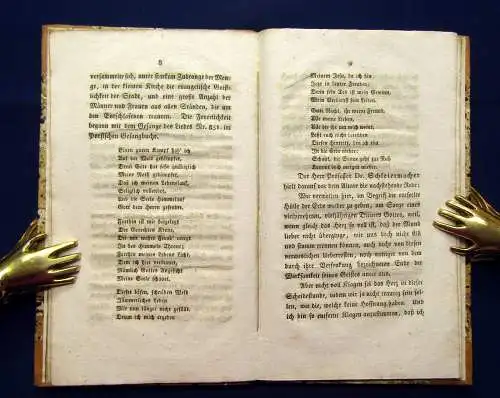 8
versammelte sich, unter starkem Zudrange der Men-
ge, in der kleinen Kirche die evangelische Geist-
lichkeit der Stadt, und eine große Anzahl der
Männer und Frauen aus allen Ständen, die um
den Entschlafenen trauern. Die Feierlichkeit
begann mit dem Gesange des Liedes Nr. 851. im
Porstischen Gesangbuche.
Einen guten Kampf hab' ich
Auf der Welt gekämpfet,
Denn Gott hat
Meine Noth gedämpfet,
Daß ich meinen Lebenslauf,
Seliglich vollendet,
Und die Seele Himmelauf
Gott dem Herrn gesendet.
Forthin ist mir beigelegt
Der Gerechten Krone,
Die mir wahre Freud' erregt
In des Himmels Throne;
Forthin meines Lebens Licht,
Dem ich hier vertrauet,
Nämlich Gottes Angesicht
Meine Seele schauet.
Dieser bösen, schnöden Welt
Jämmerliches Leben
Mir nun länger nicht gefällt,
Drum ich mich ergeben
9
Meinem Jesu, da ich bin
Jetzt in lauter Freuden;
Denn sein Tod ist mein Gewinn,
Mein Verdienst sein Leiden.
Gute Nacht, ihr meine Freund',
Alle meine Lieben,
Alle die ihr um mich weint,
Laßt euch nicht betrüben
Diesen Hintritt, den ich thu'
In die Erde nieder:
Schaut, die Sonne geht zur Ruh'
Kommt doch morgen wieder.
Der Herr Professor Dr. Schleiermacher
hielt darauf vor dem Altare die nachstehende Rede:
Wir vermeilen hier, im Begriff die entseelte
Hülle der Erde wieder zu geben, am Sarge eines
vielverehrten, vieljährigen Dieners Gottes, weil,
wenn gleich das Herz so voll ist, daß der Mund
lieber nicht überginge, wir uns doch nicht still
und stumm trennen können, auch nicht von diesen
verweslichen Ueberresten, noch weniger von den
durch ihre Versenkung bezeichneten Ende der
Wirksamkeit seines Geistes unter uns.
Aber nicht von Klagen sei das Herz in dieser
Scheidestunde, indem wir ja nicht traurig sein sol-
len, wie die, die keine Hoffnung haben, und ich
bin so entfernt Klagen anzustimmen, daß ich